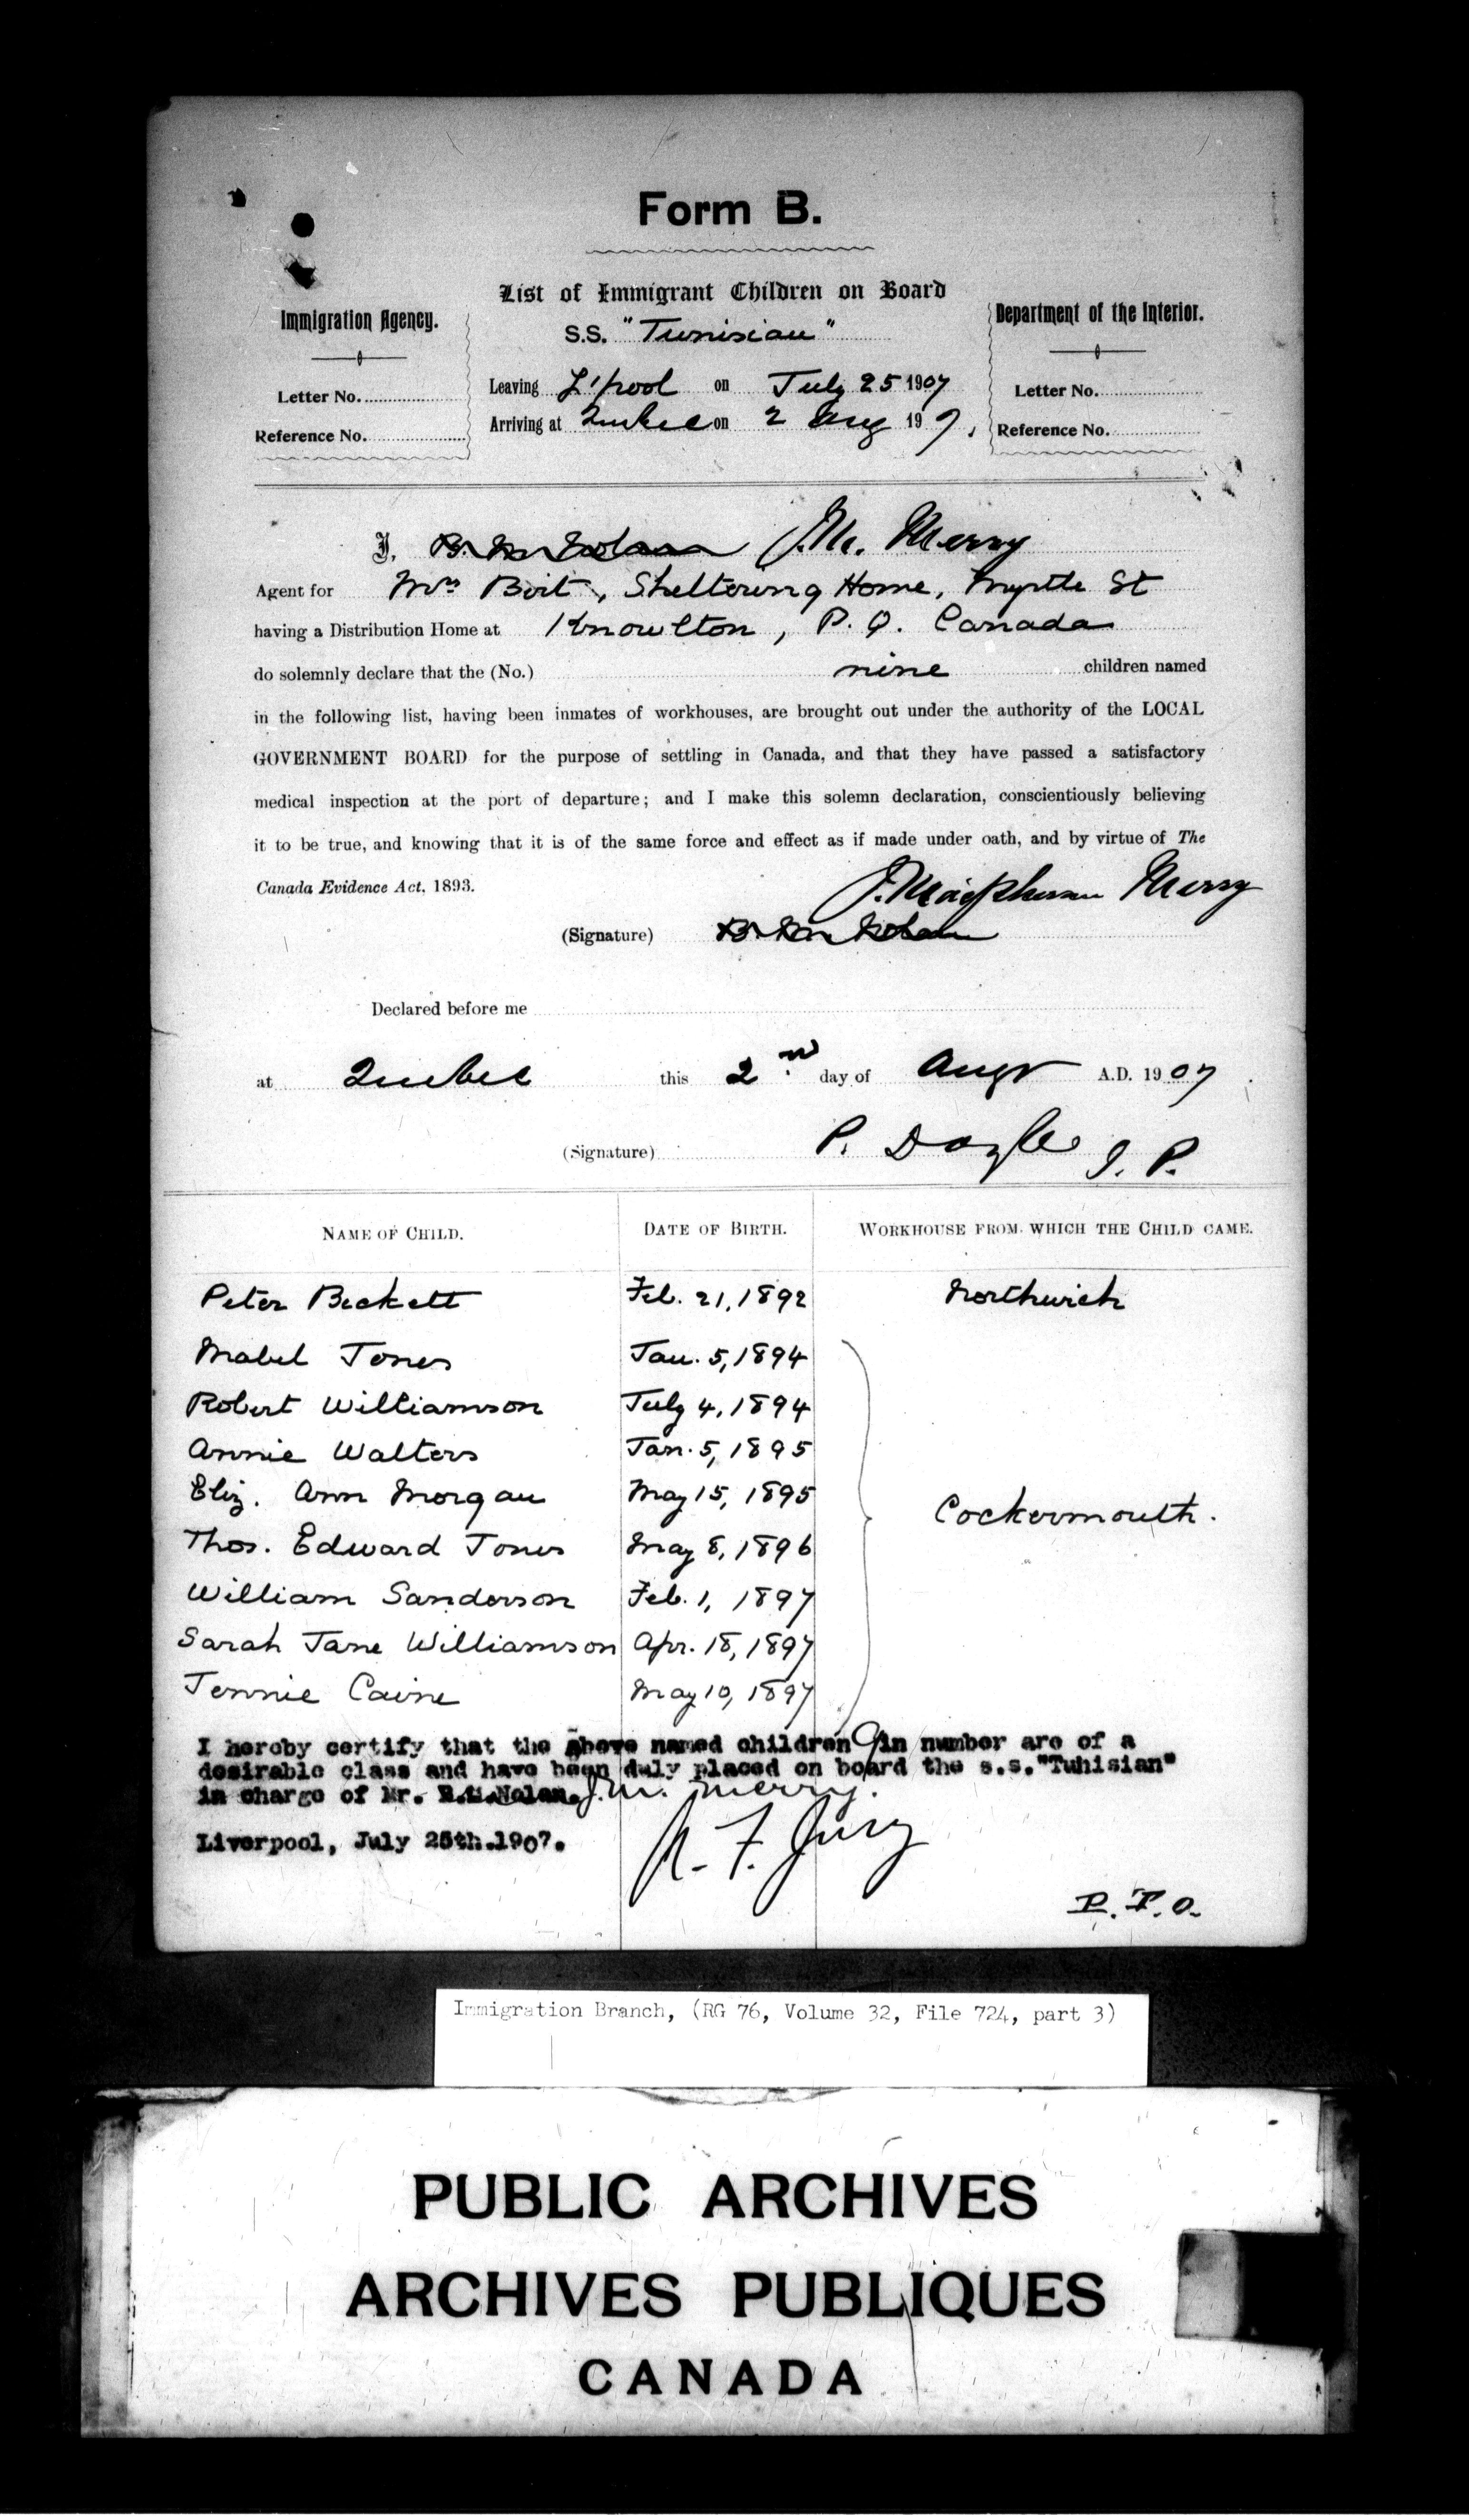 Form B.
List of Immigrant Children on Board
S.S. "Tunisian"
Immigration Agency.
Letter No.
Reference No.
Leaving L'pool on July 25 1907
Arriving at Quebec on 2 Aug 19 7.
Department of the Interior.
Letter No.
Reference No.
I, B. M. Nolan J. M. Merry
Agent for Mrs Birt, Sheltering Home, Myrtle St
having a Distribution Home at Knowlton, P. Q. Canada
do solemnly declare that the (No.) nine children named
in the following list, having been inmates of workhouses, are brought out under the authority of the LOCAL
GOVERNMENT BOARD for the purpose of settling in Canada, and that they have passed a satisfactory
medical inspection at the port of departure; and I make this solemn declaration, conscientiously believing
it to be true, and knowing that it is of the same force and effect as if made under oath, and by virtue of The
Canada Evidence Act, 1893.
J. Macpherson Merry
(Signature) B. M. Nolan
Declared before me
at Quebec this 2nd day of Augt A.D. 1907.
(Signature) P. Doyle J. P.
NAME OF CHILD. DATE OF BIRTH. WORKHOUSE FROM WHICH THE CHILD CAME.
Peter Beckett Feb. 21, 1892 Northwich
Mabel Jones Jan. 5, 1894
Robert Williamson July 4, 1894
Annie Walters Jan. 5, 1895
Eliz. Ann Morgan May 15, 1895
Cockermouth.
Thos. Edward Jones May 8, 1896
William Sanderson Feb. 1, 1897
Sarah Jane Williamson Apr. 18, 1897
Jennie Caine May 10, 1897
I hereby certify that the above named children 9 in number are of a
desirable class and have been duly placed on board the s.s."Tunisian"
in charge of Mr. B.M.Nolan. J. M. Merry.
Liverpool, July 25th.1907.
A. F. Jury
P.T.O.
Immigration Branch, (RG 76, Volume 32, File 724, part 3)
PUBLIC ARCHIVES
ARCHIVES PUBLIQUES
CANADA